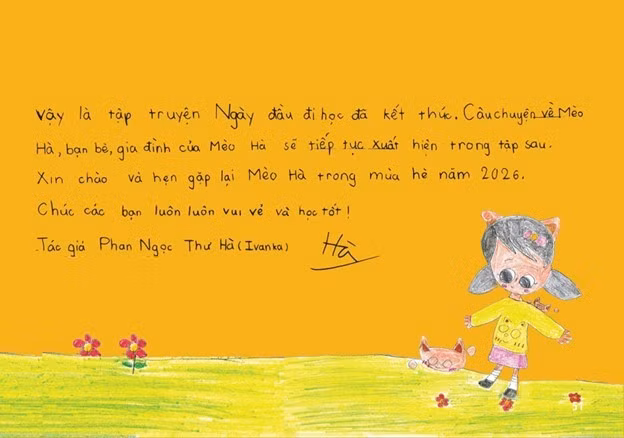 Vậy là tập truyện Ngày đầu đi học đã kết thúc. Câu chuyện về Mèo
Hà, bạn bè, gia đình của Mèo Hà sẽ tiếp tục xuất hiện trong tập sau.
Xin chào và hẹn gặp lại Mèo Hà trong mùa hè năm 2026.
Chúc các bạn luôn luôn vui vẻ và học tốt!
Tác giả Phan Ngọc Thư Hà (Ivanka) Hà